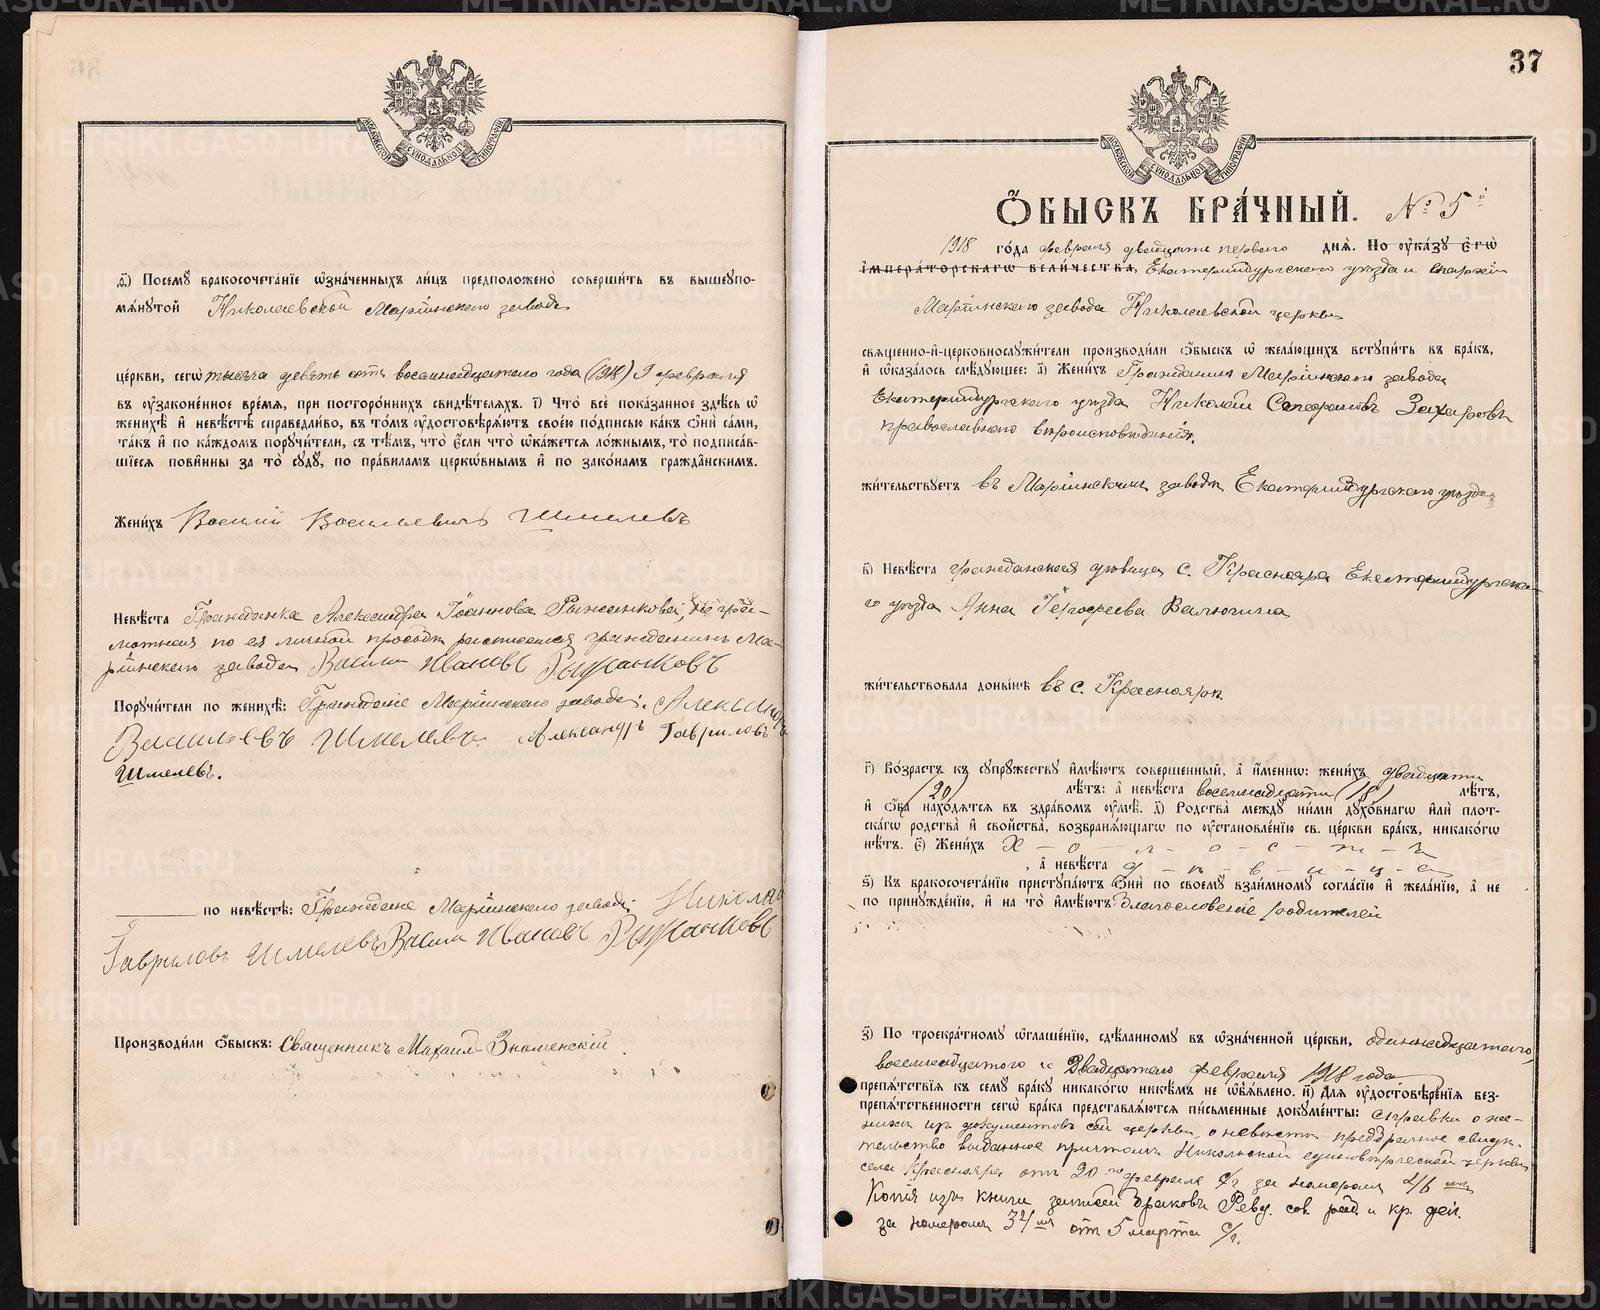 МОСКОВСКОЙ СѴНОДАЛЬНОЙ ТИПОГРАФІИ
д҃) Посемꙋ бракосочета́нїе ѡ҆зна́ченныхъ ли́цъ предположено̀ соверши́ть въ вышеꙋпо-
мѧ́нꙋтой Николаевской Маріинскаго завода
це́ркви, сегѡ̀ тысяча девять сотъ восемнадцатаго года (1918) 9 февраля
въ ᲂу҆зако́ненное вре́мѧ, при посторо́ннихъ свидѣ́телѧхъ. і҃) Что̀ всѐ пока́занное здѣ́сь ѡ҆
женихѣ̀ и҆ невѣ́стѣ справедли́во, въ то́мъ ᲂу҆достовѣрѧ́ютъ своє́ю по́дписью ка́къ ѻ҆нѝ са́ми,
та́къ и҆ по ка́ждомъ порꙋчи́тели, съ тѣ́мъ, что̀ є҆́сли что̀ ѡ҆ка́жетсѧ ло́жнымъ, то̀ подписа́в-
шїесѧ пови́нны за то̀ сꙋдꙋ̀, по пра́виламъ церко́внымъ и҆ по зако́намъ гражда́нскимъ.
Жени́хъ Василий Васильевичъ Шмелевъ
Невѣ́ста Гражданка Александра Іоаннова Рыжанкова, не гра-
мотная по ея личной просьбѣ расписался гражданинъ Ма-
ріинскаго завода Василий Ивановъ Рыжанковъ
Порꙋчи́тели по женихѣ̀: Граждане Маріинскаго завода: Александръ
Васильевъ Шмелевъ Александръ Гавриловъ
Шмелевъ.
по невѣ́стѣ: Граждане Маріинскаго завода: Николай
Гавриловъ Шмелевъ Василий Ивановъ Рыжанковъ
Производи́ли ѻ҆́быскъ: Священникъ Михаилъ Знаменскій.
37
МОСКОВСКОЙ СѴНОДАЛЬНОЙ ТИПОГРАФІИ
Ѻ҆́быскъ бра́чный. № 5й
1918 го́да февраля двадцать перваго днѧ̀. По ᲂу҆ка́зꙋ є҆гѡ̀
и҆мпера́торскагѡ вели́чества, Екатеринбургскаго уѣзда и епархіи
Маріинскаго завода Николаевской церкви
свѧще́нно-и҆-церковнослꙋжи́тели производи́ли ѻ҆́быскъ ѡ҆ жела́ющихъ встꙋпи́ть въ бра́къ,
и҆ ѡ҆каза́лось слѣ́дꙋющее: а҃) Жени́хъ Гражданинъ Маріинскаго завода
Екатеринбургскаго уѣзда Николай Захаровъ
православнаго вѣроисповѣданія.
жи́тельствꙋетъ въ Маріинскомъ заводѣ Екатеринбургскаго уѣзда
в҃) Невѣ́ста гражданская дѣвица с. Краснояра Екатеринбургска-
го уѣзда Анна Валюгина
жи́тельствовала доны́нѣ въ с. Красноярѣ
г҃) Во́зрастъ къ сꙋпрꙋ́жествꙋ и҆мѣ́ютъ соверше́нный, а҆ и҆́меннѡ: жени́хъ двадцати
(20) лѣ́тъ: а҆ невѣ́ста восемнадцати (18) лѣ́тъ,
и҆ ѻ҆́ба нахо́дѧтсѧ въ здра́вомъ ᲂу҆мѣ̀. д҃) Родства̀ междꙋ̀ ни́ми дꙋхо́внагѡ и҆лѝ пло́т-
скагѡ родства̀ и҆ сво́йства, возбранѧ́ющагѡ по ᲂу҆становле́нїю св. це́ркви бра́къ, никако́гѡ
нѣ́тъ. є҃) Жени́хъ Х-о-л-о-с-т-ъ
, а҆ невѣ́ста д-ѣ-в-и-ц-а
ѕ҃) Къ бракосочета́нїю пристꙋпа́ютъ ѻ҆нѝ по своемꙋ̀ взаи́мномꙋ согла́сїю и҆ жела́нїю, а҆ не
по принꙋжде́нїю, и҆ на то̀ и҆мѣ́ютъ Благословеніе родителей
з҃) По троекра́тномꙋ ѡ҆глаше́нїю, сдѣ́ланномꙋ въ ѡ҆зна́ченной це́ркви, одиннадцатаго,
восемнадцатаго и Двадцатаго февраля 1918 года
препѧ́тствїѧ къ семꙋ̀ бра́кꙋ никако́гѡ никѣ́мъ не ѡ҆б̾ѧ́влено. и҃) Длѧ̀ ᲂу҆достовѣре́нїѧ без-
препѧ́тственности сегѡ̀ бра́ка представлѧ́ютсѧ пи́сьменные докꙋме́нты: справки о же-
нихѣ изъ документовъ сей церкви, о невѣстѣ предбрачное свидѣ-
тельство выданное причтомъ Никольской единовѣрческой церкви
села Краснояра отъ 20го февраля с/г за номеромъ
Копія изъ книги записей браковъ Ревд. сов. раб. и кр. деп.
за номеромъ отъ 5 марта с/г.
METRIKI.GASO-URAL.RU